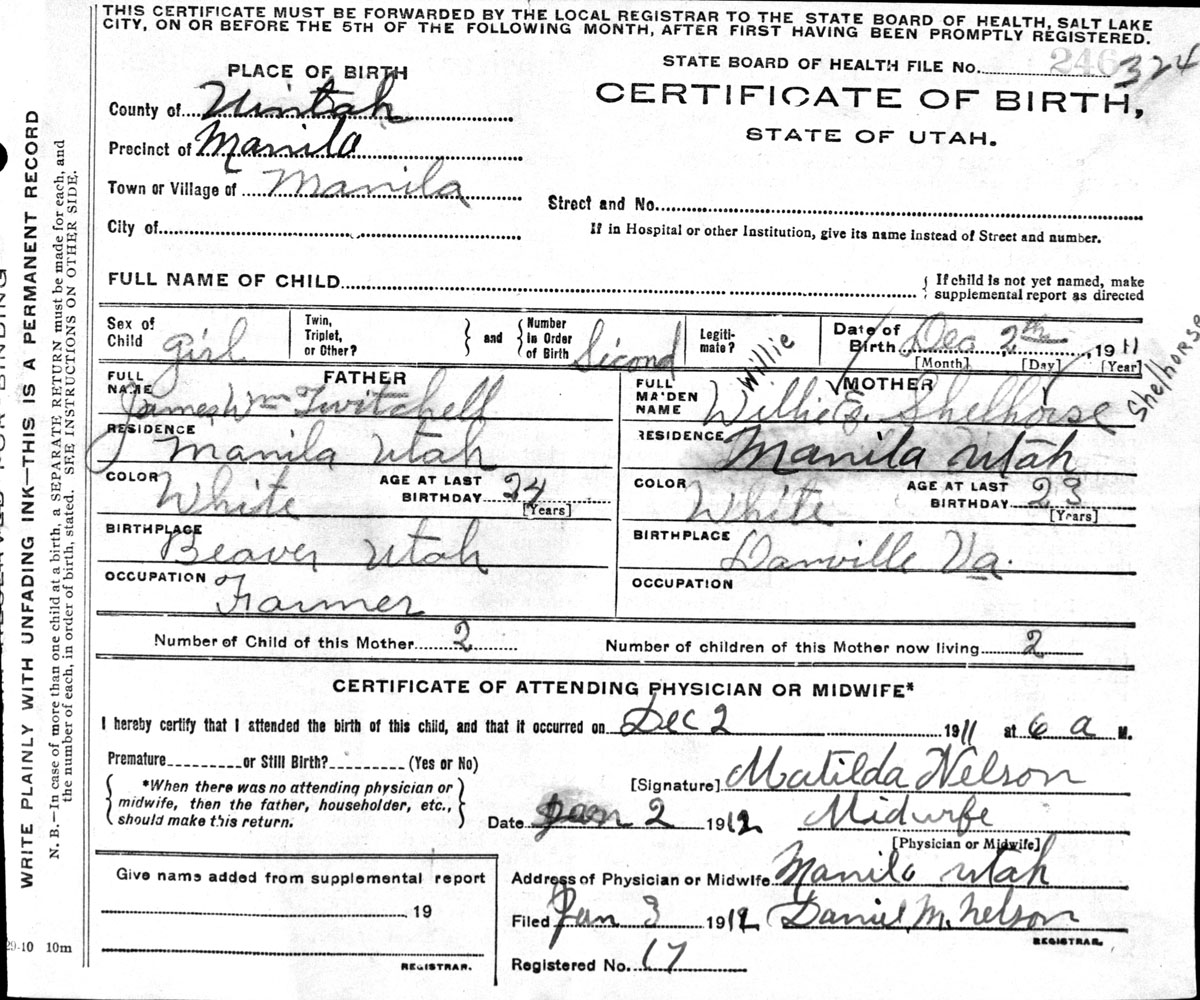 THIS CERTIFICATE MUST BE FORWARDED BY THE LOCAL REGISTRAR TO THE STATE BOARD OF HEALTH, SALT LAKE
CITY, ON OR BEFORE THE 5TH OF THE FOLLOWING MONTH, AFTER FIRST HAVING BEEN PROMPTLY REGISTERED.
WRITE PLAINLY WITH UNFADING INK—THIS IS A PERMANENT RECORD
N. B.—In case of more than one child at a birth, a SEPARATE RETURN must be made for each, and
the number of each, in order of birth, stated. SEE INSTRUCTIONS ON OTHER SIDE.
PLACE OF BIRTH
County of Uintah
Precinct of Manila
Town or Village of Manila
City of
STATE BOARD OF HEALTH FILE No. 246 324
CERTIFICATE OF BIRTH,
STATE OF UTAH.
Street and No.
If in Hospital or other Institution, give its name instead of Street and number.
FULL NAME OF CHILD
{ If child is not yet named, make
supplemental report as directed
Sex of Child girl
Twin, Triplet, or Other?
} and { Number in Order of Birth Second
Legiti-mate?
Date of Birth Dec 2th, 1911
[Month] [Day] [Year]
FATHER
FULL NAME James Wm Twitchell
RESIDENCE Manila Utah
COLOR White AGE AT LAST BIRTHDAY 24 [Years]
BIRTHPLACE Beaver Utah
OCCUPATION Farmer
MOTHER
Willie
FULL MAIDEN NAME Willie E. Shelhorse
Shelhorse
RESIDENCE Manila Utah
COLOR White AGE AT LAST BIRTHDAY 23 [Years]
BIRTHPLACE Danville Va.
OCCUPATION
Number of Child of this Mother 2 Number of children of this Mother now living 2
CERTIFICATE OF ATTENDING PHYSICIAN OR MIDWIFE*
I hereby certify that I attended the birth of this child, and that it occurred on Dec 2 1911 at 6 a M.
Premature or Still Birth? (Yes or No)
{ *When there was no attending physician or
midwife, then the father, householder, etc.,
should make this return. }
[Signature] Matilda Nelson
Date Jan 2 1912 Midwife
[Physician or Midwife]
Give name added from supplemental report
19
REGISTRAR.
Address of Physician or Midwife Manila Utah
Filed Jan 3 1912 Daniel M. Nelson
REGISTRAR.
Registered No. 17
10 10m